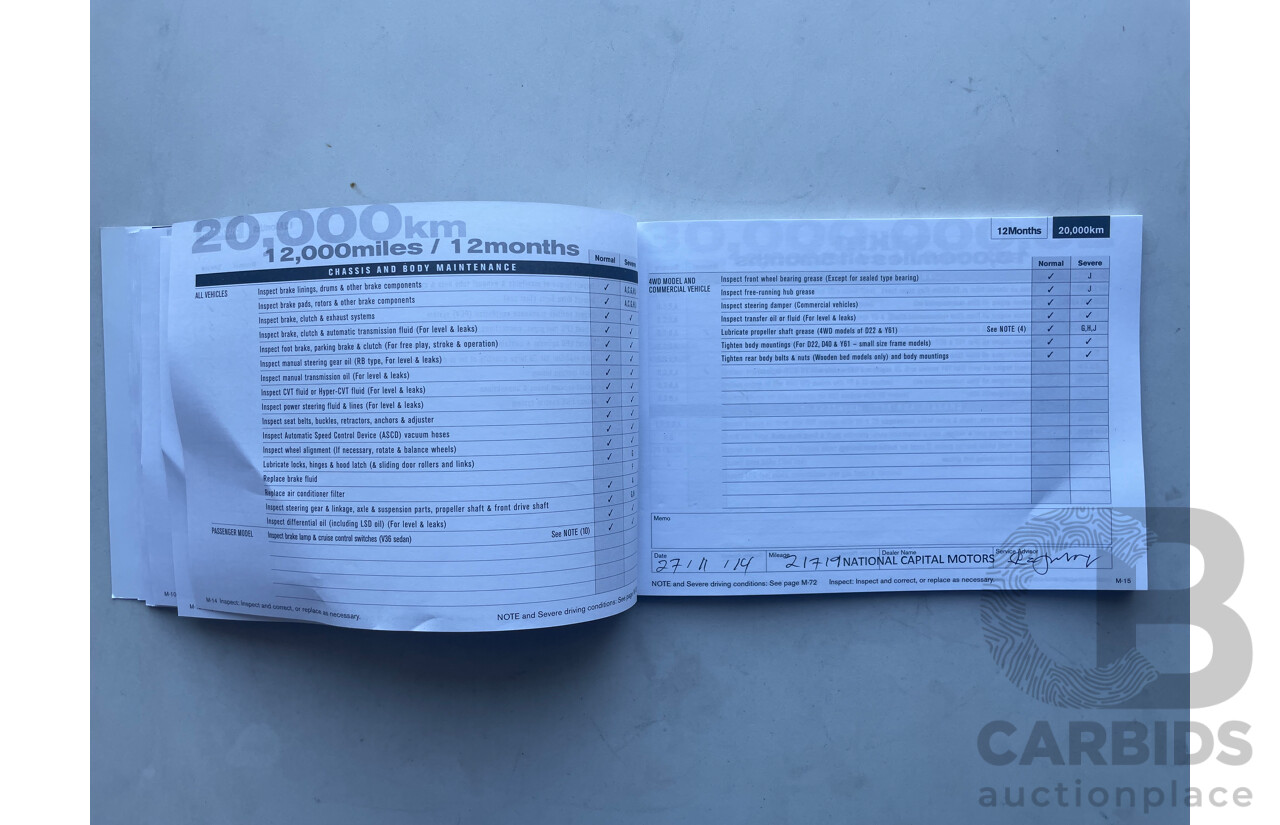 20,000km
12,000miles / 12months
CHASSIS AND BODY MAINTENANCE
Normal Severe
ALL VEHICLES
Inspect brake linings, drums & other brake components ✓
Inspect brake pads, rotors & other brake components ✓
Inspect brake, clutch & exhaust systems ✓ ✓
Inspect brake, clutch & automatic transmission fluid (For level & leaks) ✓ ✓
Inspect foot brake, parking brake & clutch (For free play, stroke & operation) ✓ ✓
Inspect manual steering gear oil (RB type, For level & leaks) ✓ ✓
Inspect manual transmission oil (For level & leaks) ✓ ✓
Inspect CVT fluid or Hyper-CVT fluid (For level & leaks) ✓ ✓
Inspect power steering fluid & lines (For level & leaks) ✓ ✓
Inspect seat belts, buckles, retractors, anchors & adjuster ✓ ✓
Inspect Automatic Speed Control Device (ASCD) vacuum hoses ✓ ✓
Inspect wheel alignment (If necessary, rotate & balance wheels) ✓
Lubricate locks, hinges & hood latch (& sliding door rollers and links) ✓
Replace brake fluid
Replace air conditioner filter ✓
Inspect steering gear & linkage, axle & suspension parts, propeller shaft & front drive shaft ✓
Inspect differential oil (including LSD oil) (For level & leaks) ✓ ✓
PASSENGER MODEL Inspect brake lamp & cruise control switches (V36 sedan) See NOTE (10) ✓
M-14 Inspect: Inspect and correct, or replace as necessary.
NOTE and Severe driving conditions: See page
12Months 20,000km
Normal Severe
4WD MODEL AND COMMERCIAL VEHICLE
Inspect front wheel bearing grease (Except for sealed type bearing) ✓ J
Inspect free-running hub grease ✓ J
Inspect steering damper (Commercial vehicles) ✓ ✓
Inspect transfer oil or fluid (For level & leaks) ✓ ✓
Lubricate propeller shaft grease (4WD models of D22 & Y61) See NOTE (4) ✓ G,H,J
Tighten body mountings (For D22, D40 & Y61 – small size frame models) ✓ ✓
Tighten rear body bolts & nuts (Wooden bed models only) and body mountings ✓ ✓
Memo
Date Mileage Dealer Name Service Advisor
27 / 11 / 14 21719 NATIONAL CAPITAL MOTORS
NOTE and Severe driving conditions: See page M-72 Inspect: Inspect and correct, or replace as necessary. M-15
CARBIDS
auctionplace